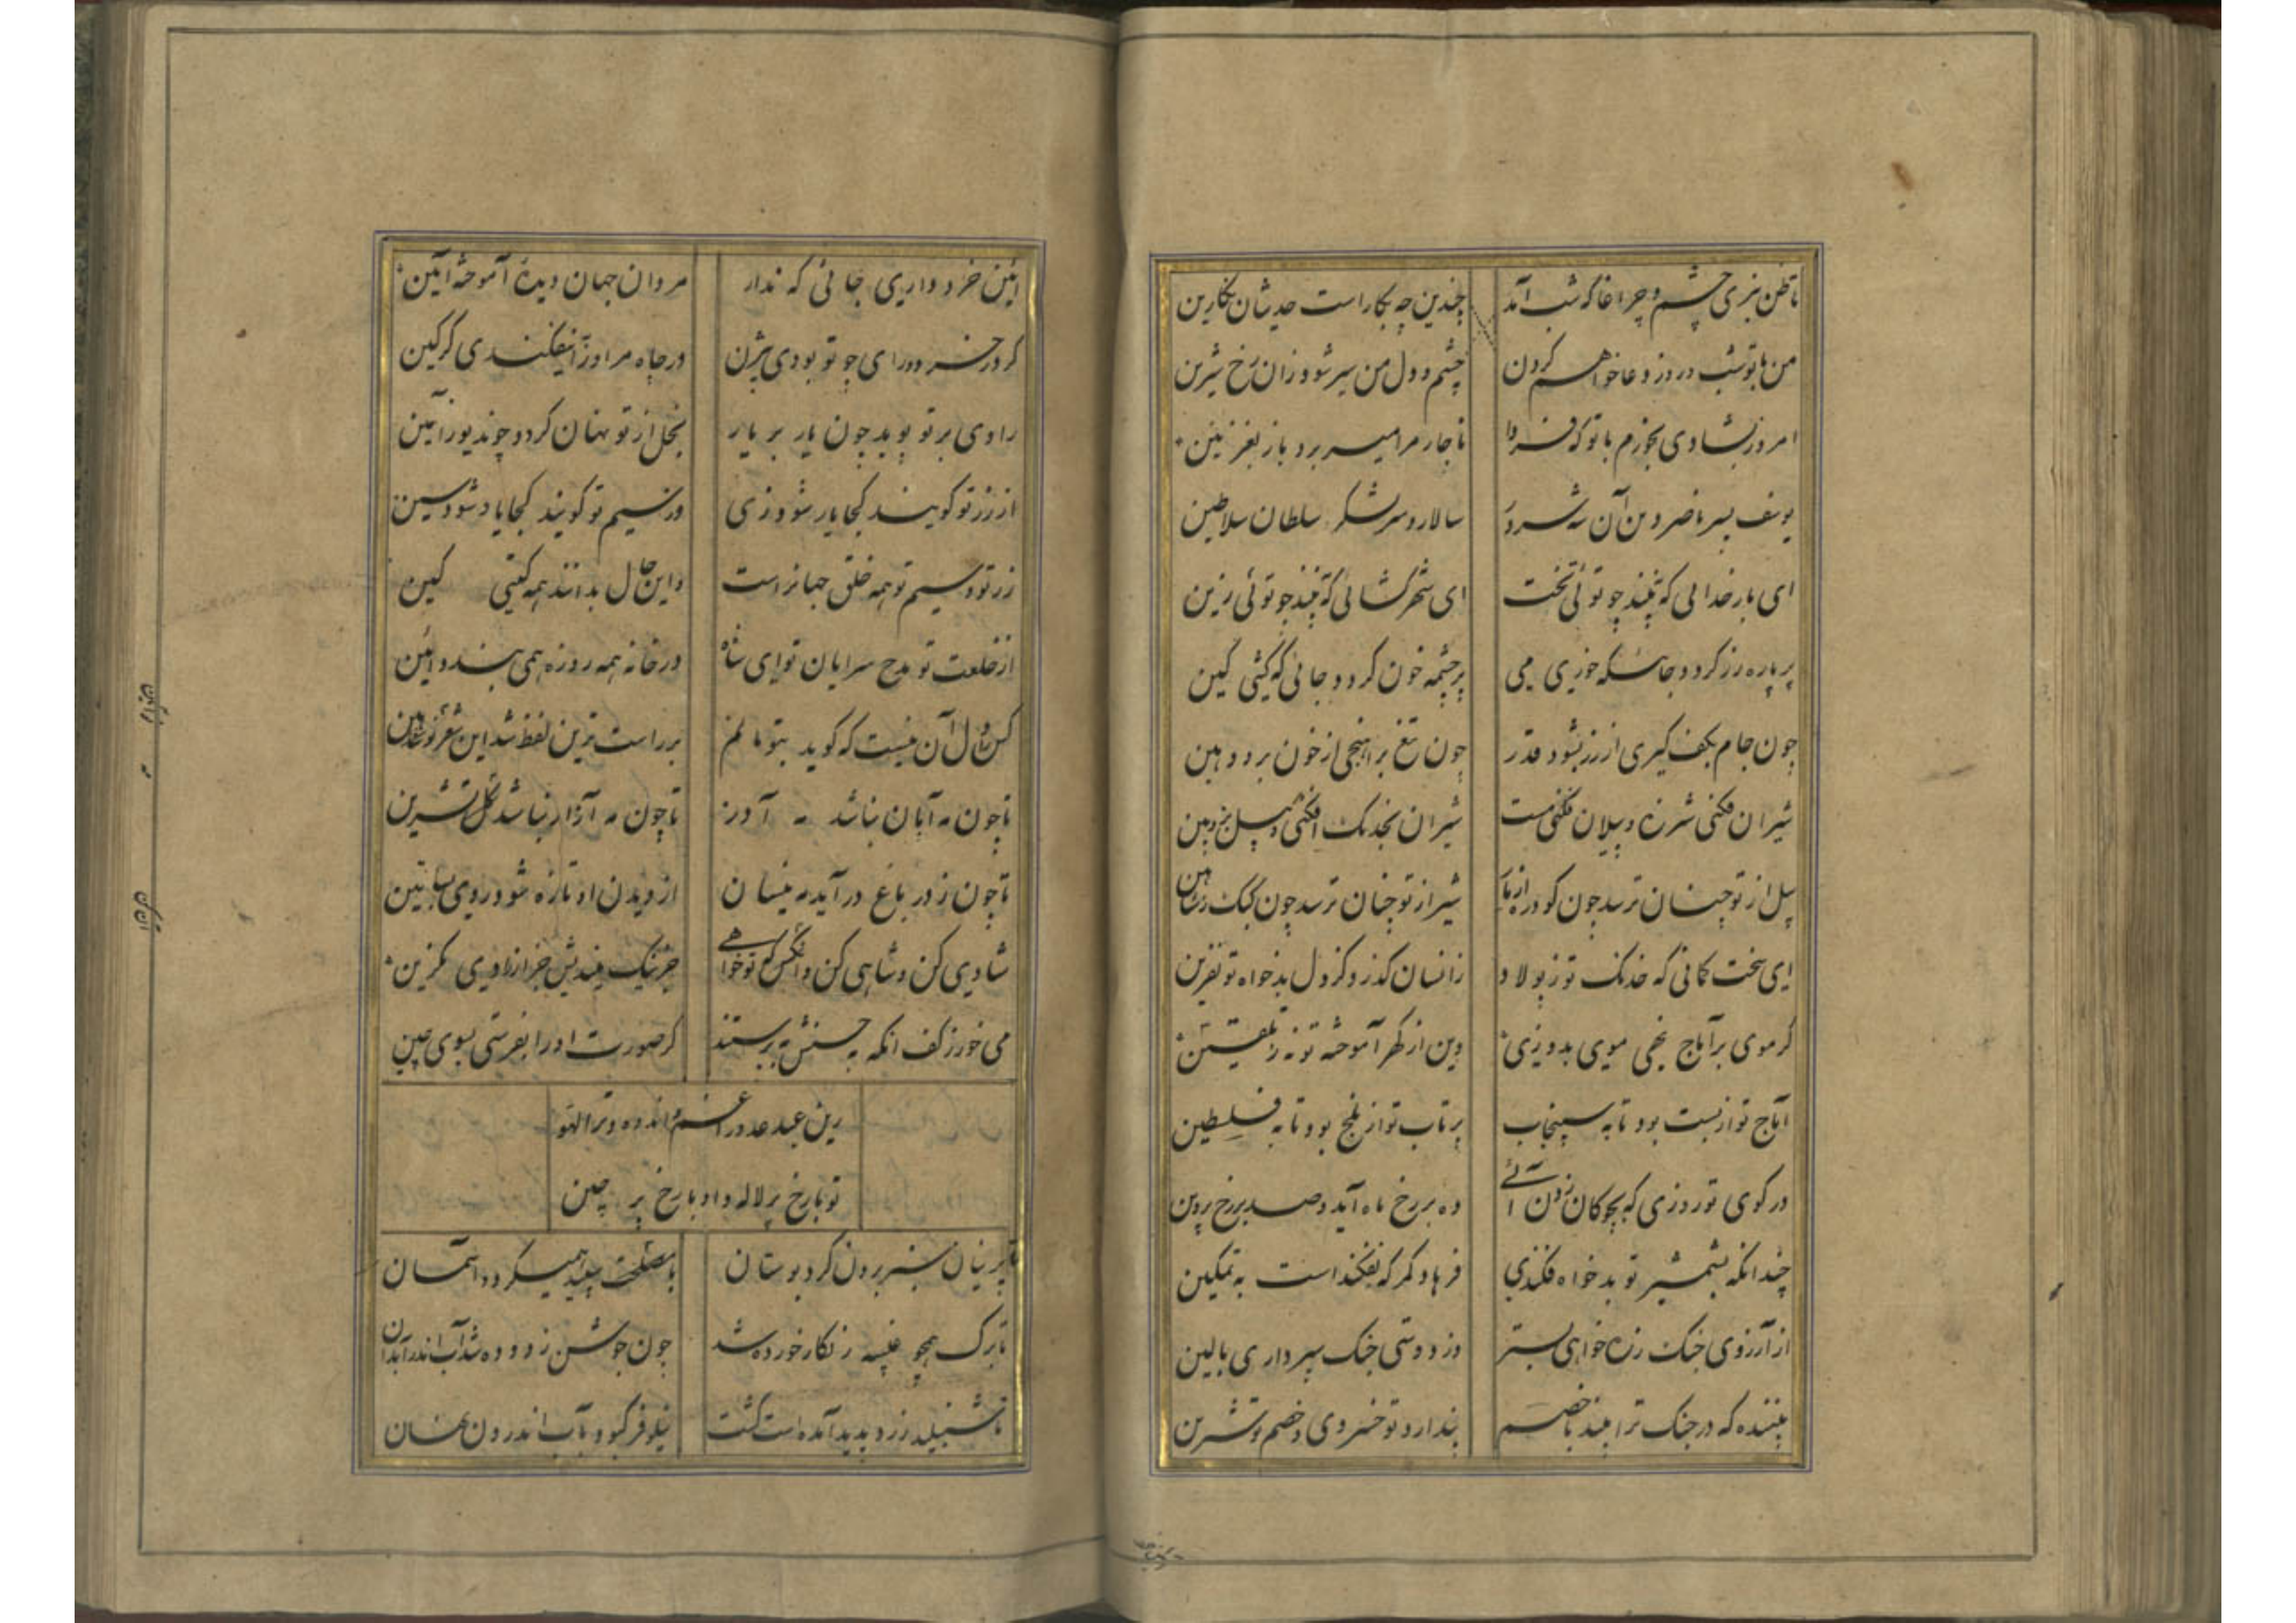 تا ظن نبری چشم و چراغا که شب آمد چندین چه بکار است حدیثان نکارین
من با تو شب و روز دعا خواهم کردن چشم و دل من سیر شود زان رخ شیرین
امروز بشادی بخورم با تو که فردا ناچار مرا میر برد باز بغزنین
یوسف پسر ناصر دین آن شه سالار و سر لشکر سلطان سلاطین
ای بار خدائی که نبیند چو توئی تخت ای شهر کشائی که نبیند چو توئی زین
پر پاره زر کردد جائیکه خوری می پر چشمه خون کردد جائی که کشی کین
چون جام بکف کیری از زر بشود قدر چون تیغ براهنجی از خون برود هین
شیران فکنی شرزه و پیلان فکنی مست شیران بخدنک افکنی و پیل بزوپین
پیل از تو چنان ترسد چون کودره از باز شیر از تو چنان ترسد چون کبک ز شاهین
ای سخت کمانی که خدنک تو ز پولاد زانسان کذرد کز دل بدخواه تو نفرین
کر موی بر آماج نهی موی بدوزی وین از کهر آموخته تو نه ز تلقین
آماج تو از بست بود تا به سپنجاب پرتاب تو از بلخ بود تا به فلسطین
در کوی تو روزی که بچوکان زدن آئی ده بر رخ ماه آید و صد بر رخ پروین
چندانکه بشمشیر تو بدخواه فکندی فرهاد کمر که نفکنداست به تمکین
از آرزوی جنک زره خواهی بستر وز دوستی جنک سپر داری بالین
بیننده که در جنک ترا بیند با خصم پندارد تو خسروی و خصم تو شیرین
ائین خرد داری جائی که ندارد مردان جهان دیده آموخته ائین
کر در خرد و رای چو تو بودی بیژن در چاه مر او را نفکندی کرکین
رادی بر تو پوید چون یار بر یار بخل از تو نهان کردد چون دیو ز یاسین
از زر تو کویند کجا یار شود زی وز سیم تو کویند کجا یاد شود سین
زر تو و سیم تو همه خلق جهانراست و این حال بدانند همه کیتی کین
از خلعت تو مدح سرایان تو ای شاه در خانه همه روزه همی بندد ائین
کس را دل آن نیست که کوید بتو مانم بر راست ترین لفظ شد این شعر نو آئین
تا چون مه آبان نباشد مه آذر تا چون مه آزار نباشد کل نسرین
تا چون ز در باغ در آید مه نیسان از دیدن او تازه شود روی بساتین
شادی کن و شاهی کن و آنکس که تو خواهی جز نیک میندیش جز از رادی مکزین
می خور ز کف انکه بحسنش بپرستند کر صورت او را بفرستی بسوی چین
زین عید عدو را غم و اندوه و ترا لهو
تو با رخ پر لاله و او با رخ پر چین
تا پرنیان سبز برون کرد بوستان با مصمت سپید همیکردد آسمان
تا برک همچو غیبه زنکار خورده شد چون جوشن زدوده شد آب اندر آبدان
تا شنبلید زرد پدید آمده است کشت نیلوفر کبود بآب اندرون نهان